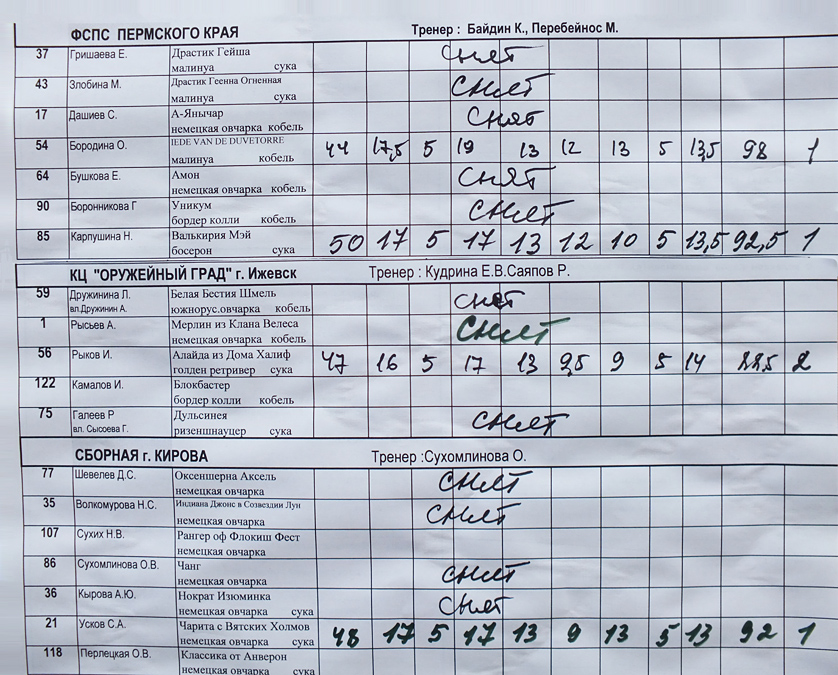 ФСПС ПЕРМСКОГО КРАЯ Тренер : Байдин К., Перебейнос М.
37 Гришаева Е. Драстик Гейша снят
малинуа сука
43 Злобина М. Драстик Геенна Огненная снят
малинуа сука
17 Дашиев С. А-Янычар снят
немецкая овчарка кобель
54 Бородина О. IEDE VAN DE DUVETORRE 44 17,5 5 19 13 12 13 5 13,5 98 1
малинуа кобель
64 Бушкова Е. Амон снят
немецкая овчарка кобель
90 Боронникова Г Уникум снят
бордер колли кобель
85 Карпушина Н. Валькирия Мэй 50 17 5 17 13 12 10 5 13,5 92,5 1
босерон сука
КЦ "ОРУЖЕЙНЫЙ ГРАД" г. Ижевск Тренер : Кудрина Е.В.Саяпов Р.
59 Дружинина Л. Белая Бестия Шмель снят
вл.Дружинин А. южнорус.овчарка кобель
1 Рысьев А. Мерлин из Клана Велеса снят
немецкая овчарка кобель
56 Рыков И. Алайда из Дома Халиф 47 16 5 17 13 9,5 9 5 14 2
голден ретривер сука
122 Камалов И. Блокбастер
бордер колли кобель
75 Галеев Р Дульсинея снят
вл. Сысоева Г. ризеншнауцер сука
СБОРНАЯ г. КИРОВА Тренер :Сухомлинова О.
77 Шевелев Д.С. Оксеншерна Аксель снят
немецкая овчарка
35 Волкомурова Н.С. Индиана Джонс в Созвездии Лун снят
немецкая овчарка
107 Сухих Н.В. Рангер оф Флокиш Фест
немецкая овчарка
86 Сухомлинова О.В. Чанг снят
немецкая овчарка
36 Кырова А.Ю. Нократ Изюминка снят
немецкая овчарка сука
21 Усков С.А. Чарита с Вятских Холмов 48 17 5 17 13 9 13 5 13 92 1
немецкая овчарка сука
118 Перлецкая О.В. Классика от Анверон
немецкая овчарка сука